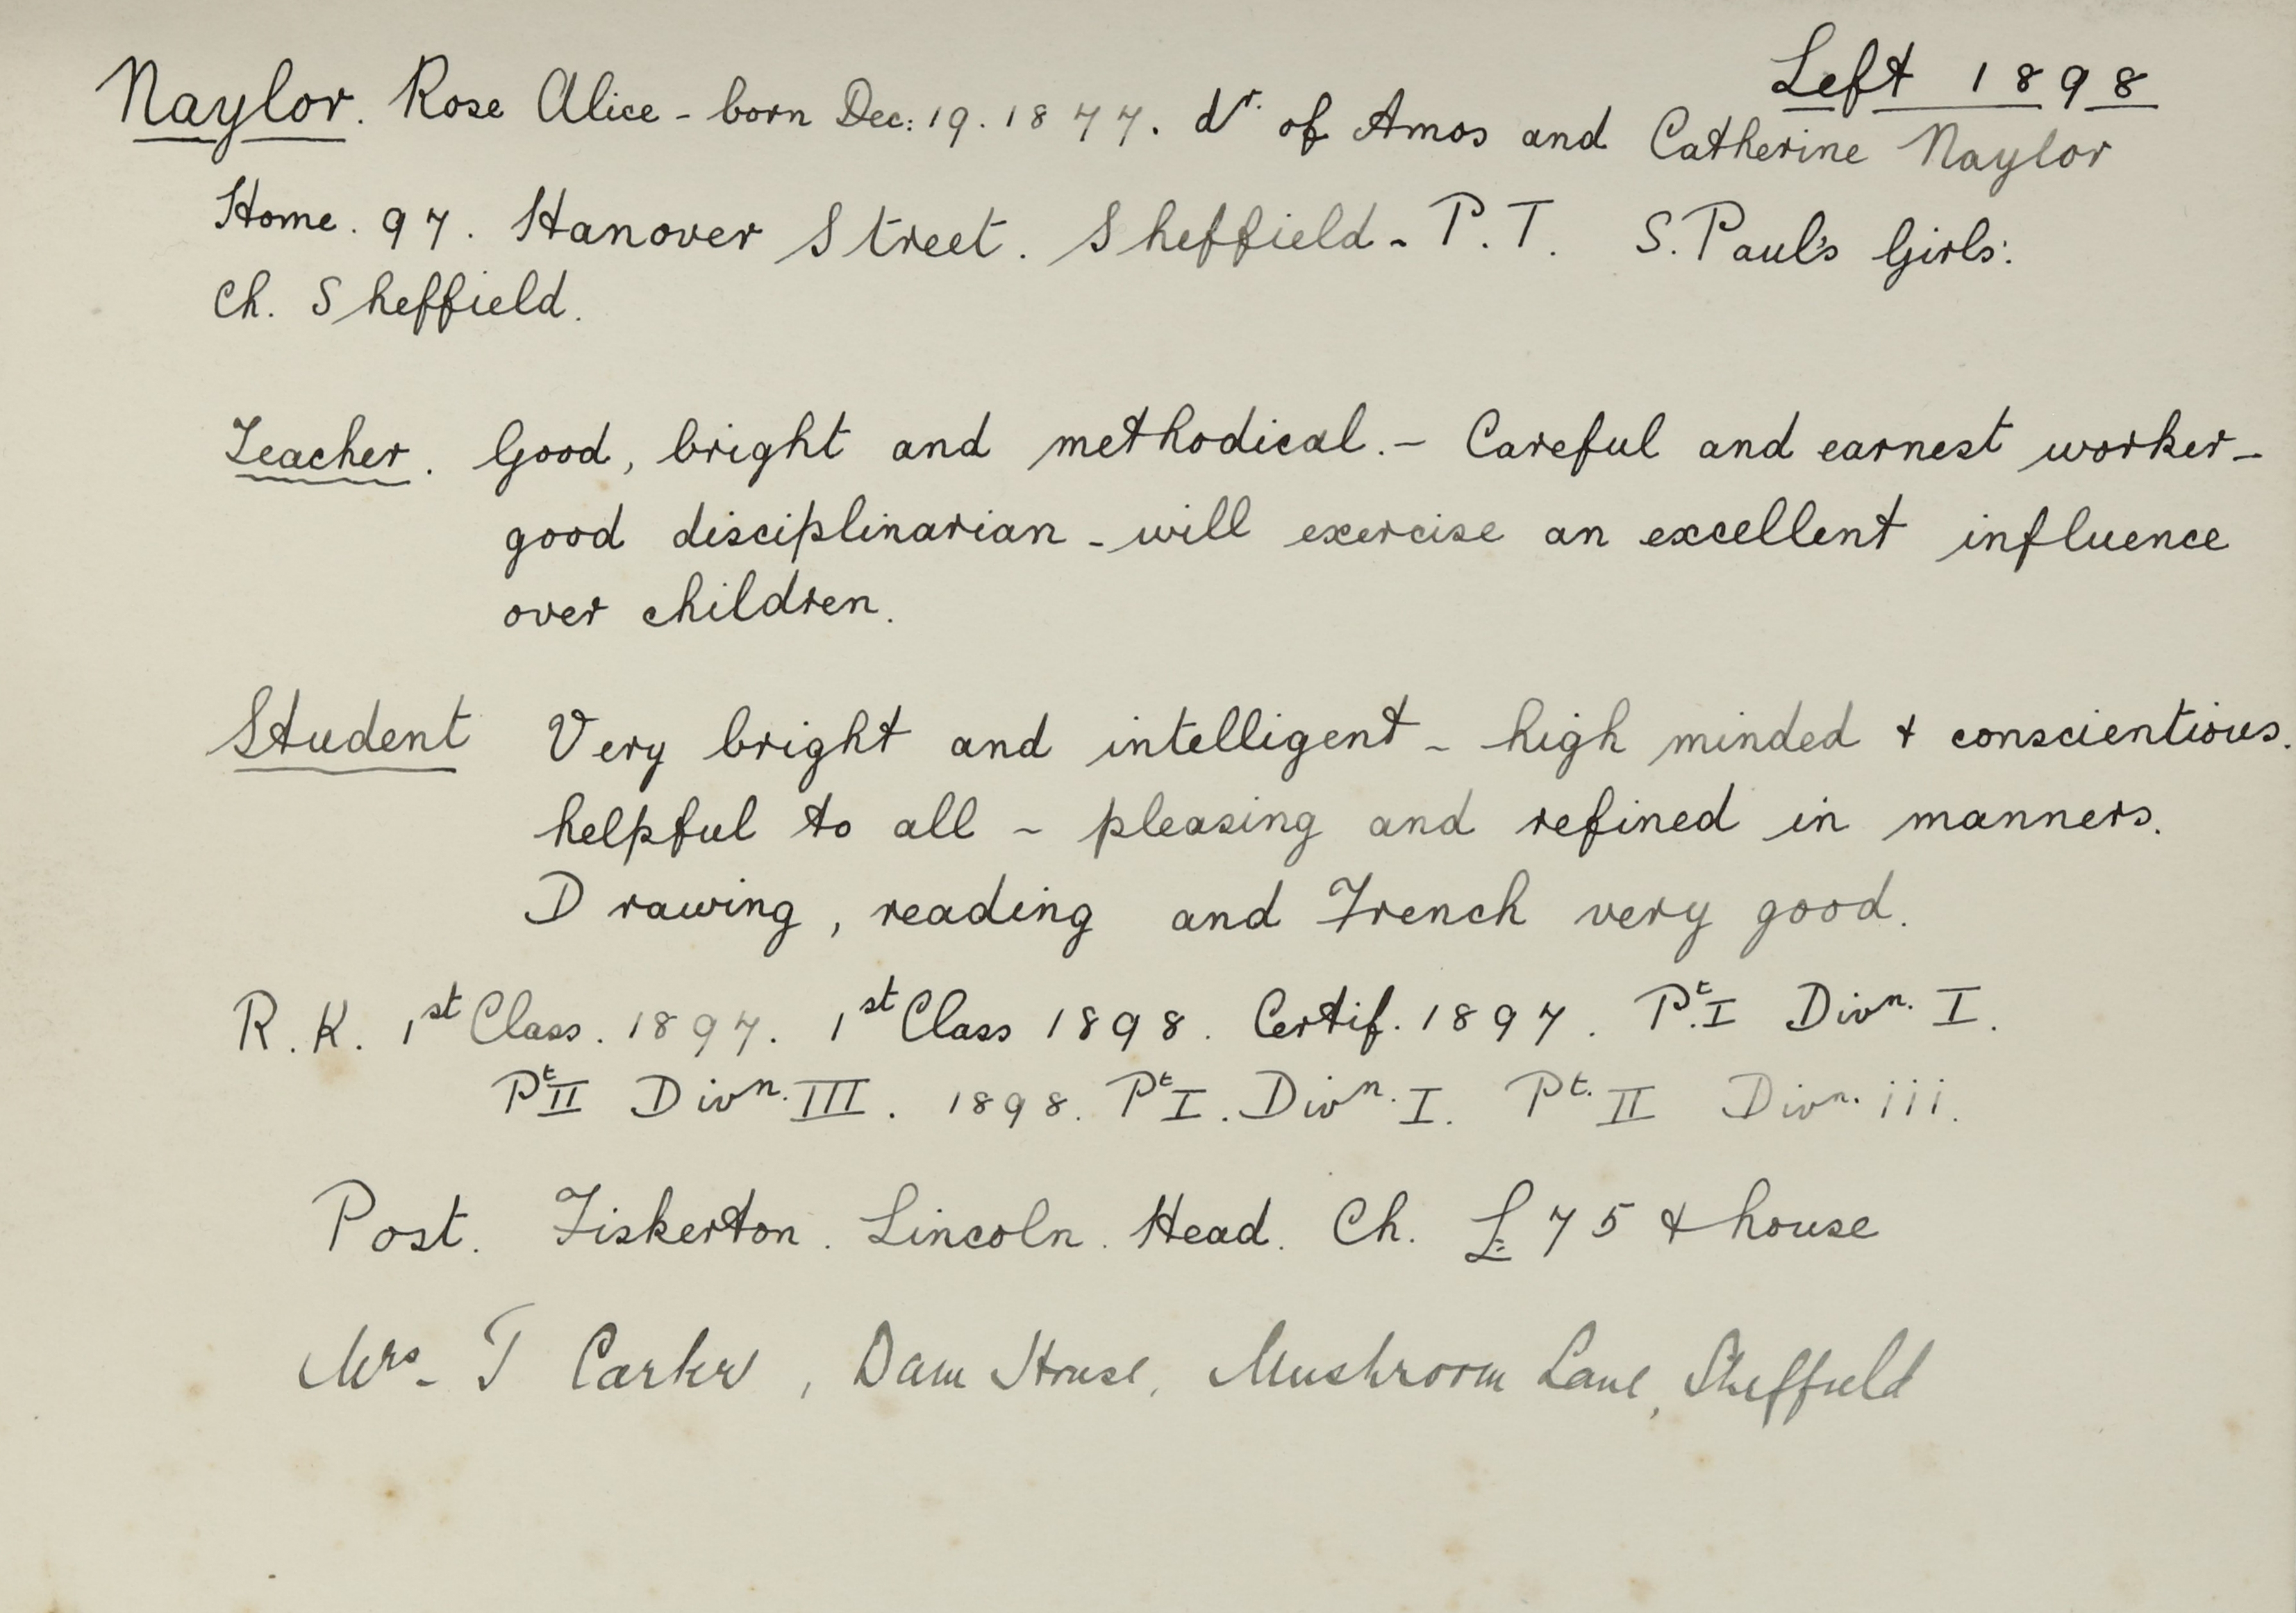 Left 1898
Naylor. Rose Alice - born Dec: 19. 1877. dr. of Amos and Catherine Naylor
Home. 97. Hanover Street. Sheffield - P.T. S. Paul's Girls:
Ch. Sheffield.
Teacher. Good, bright and methodical. - Careful and earnest worker -
good disciplinarian - will exercise an excellent influence
over children.
Student Very bright and intelligent - high minded & conscientious.
helpful to all - pleasing and refined in manners.
Drawing, reading and French very good.
R.K. 1st Class. 1897. 1st Class 1898. Certif. 1897. Pt. I Divn. I.
Pt II Divn. III. 1898. Pt I. Divn. I. Pt. II Divn. iii.
Post. Fiskerton. Lincoln. Head. Ch. £75 & house
Mrs - T Carker, Dam House, Mushroom Lane, Sheffield